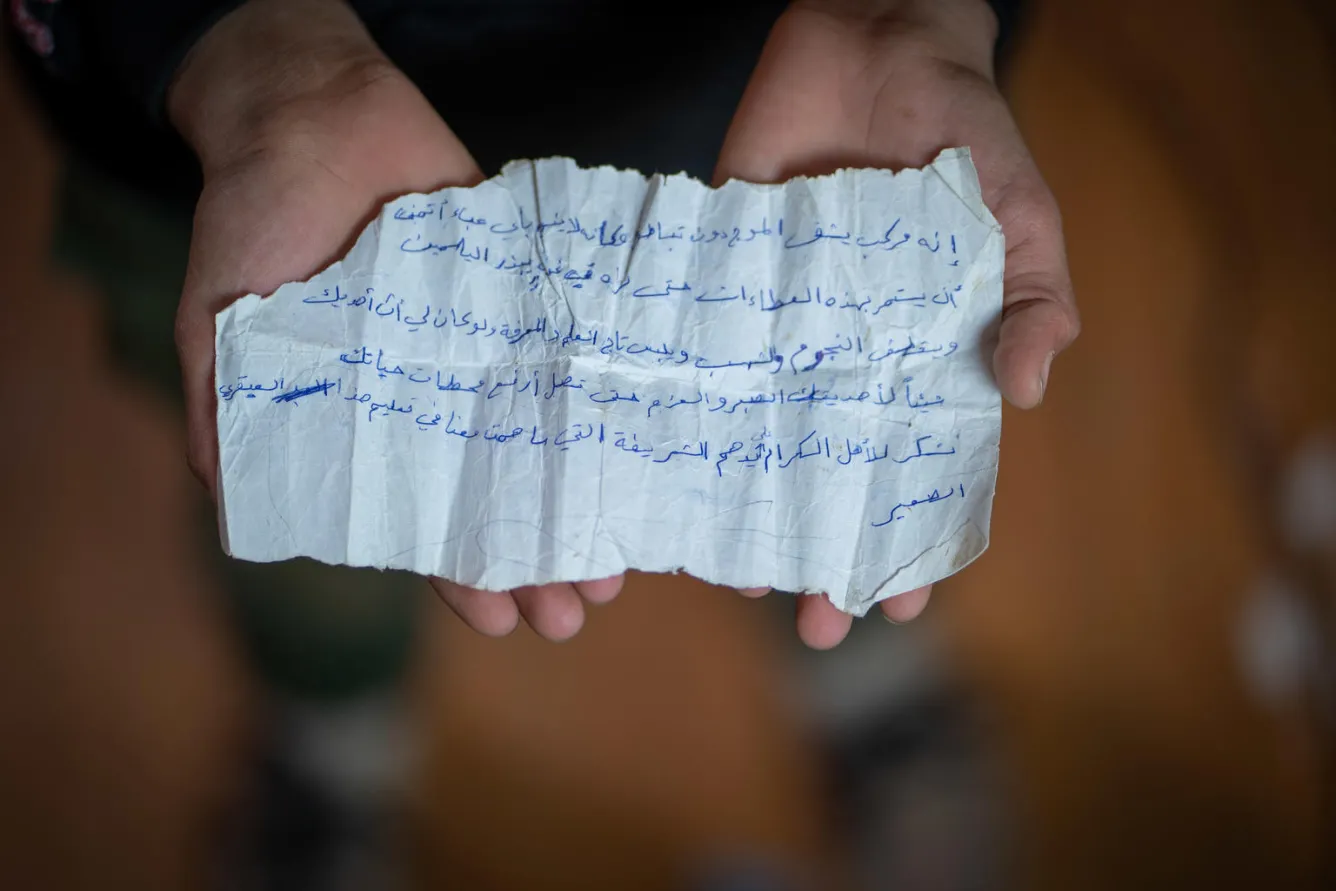 إنه مركب يشق الموج دون تباطؤ وكأنه لا يشعر بأي عباء أتمنى
أن يستمر بهذه العطاءات حتى نراه في يبذر الياسمين
ويقطف النجوم والشهب ويلبس تاج العلم والمعرفة ولو كان لي أن أهديك
شيئاً لأهديتك الصبر والعزم حتى تصل أرفع محطات حياتك
نشكر للأهل الكرام أيديهم الشريفة التي ساهمت معنا في تعليم هذا العبقري
الصغير